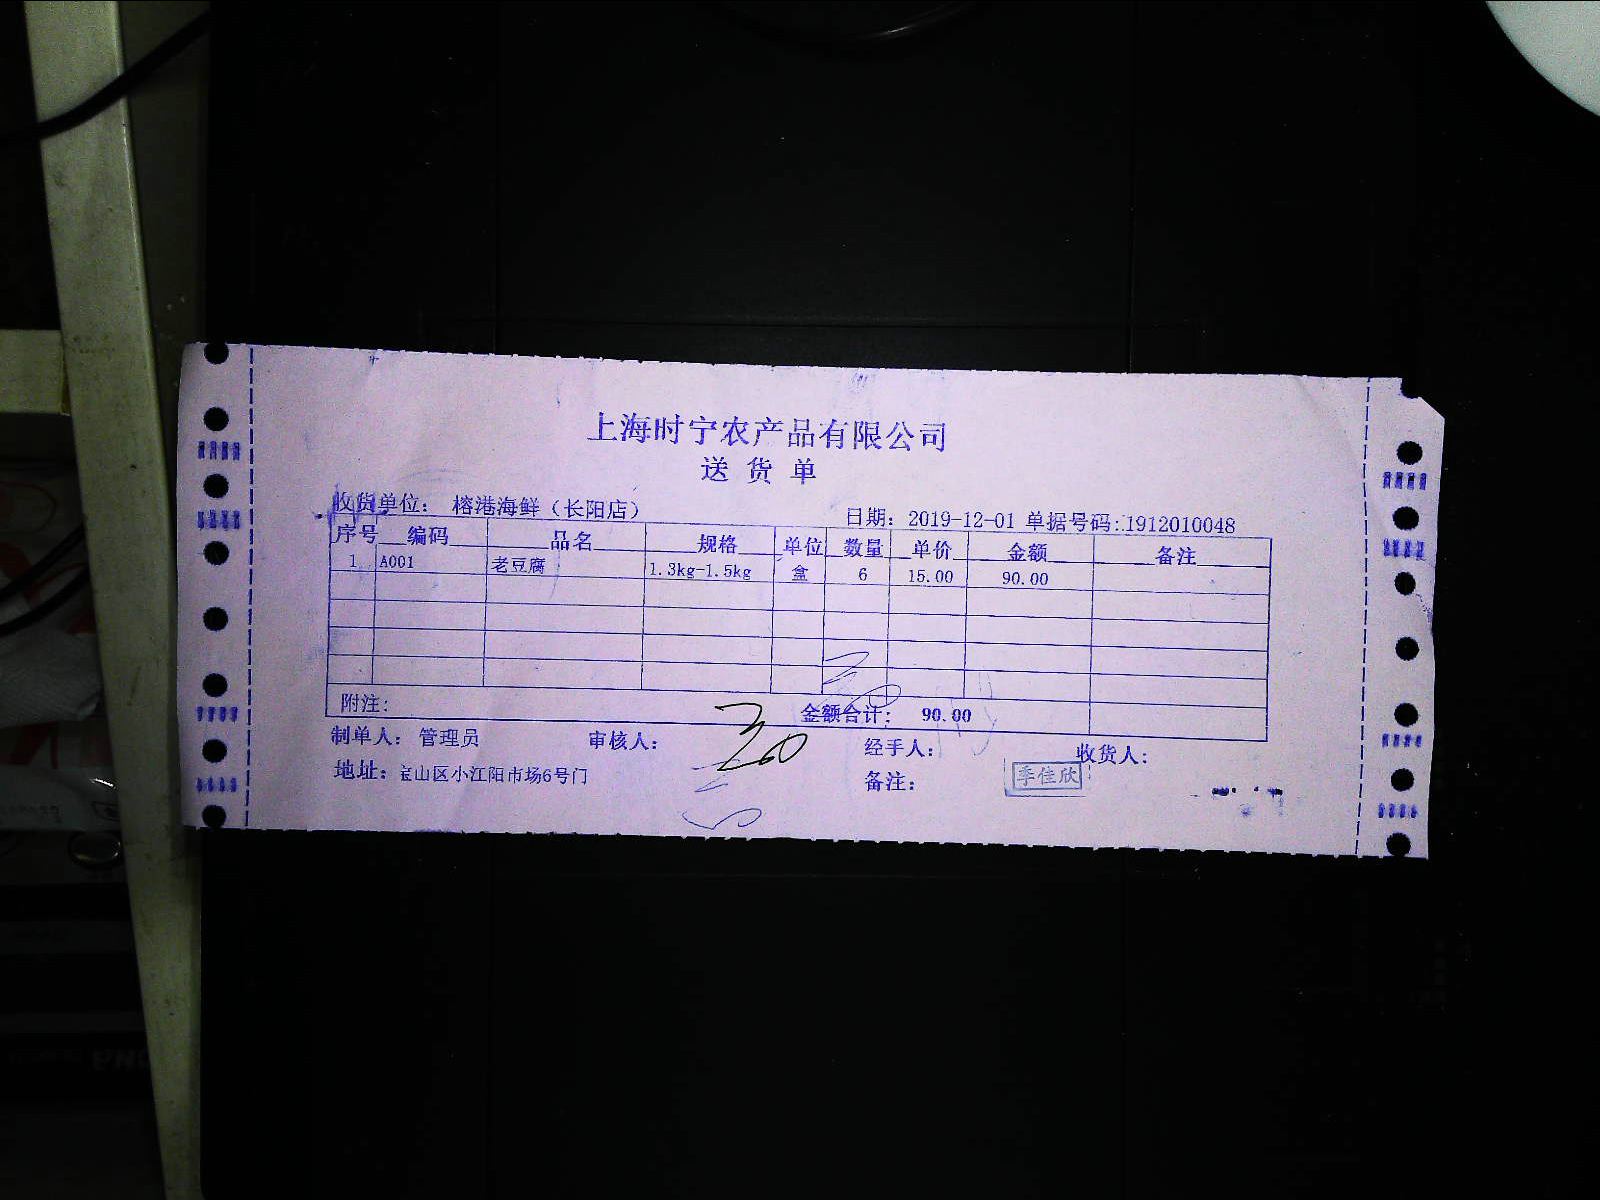 上海时宁农产品有限公司
送货单
收货单位： 榕港海鲜（长阳店） 日期： 2019-12-01 单据号码:1912010048
序号 编码 品名 规格 单位 数量 单价 金额 备注
1 A001 老豆腐 1.3kg-1.5kg 盒 6 15.00 90.00
附注: 金额合计: 90.00
制单人: 管理员 审核人: 经手人: 收货人:
地址: 宝山区小江阳市场6号门 备注:
季佳欣